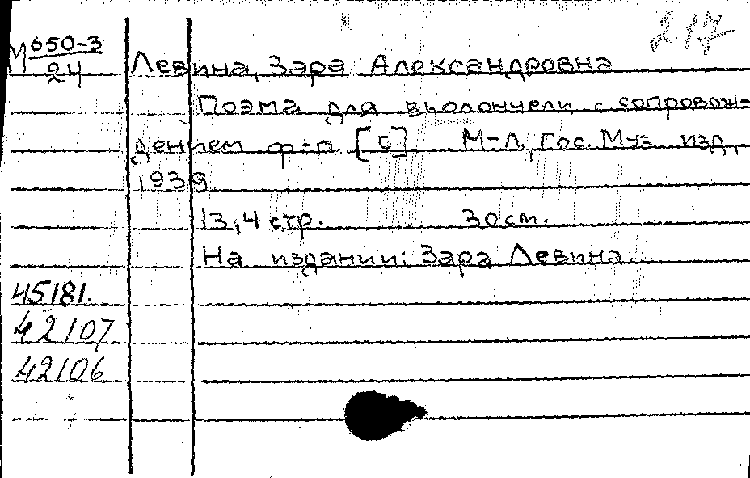 217
М 650-3
24
Левина, Зара Александровна
Поэма для виолончели с сопровож=
дением ф-п. [c]. М-Л, Гос. Муз. изд,
1939
13,4 стр. 30 см.
На издании: Зара Левина
45181.
42107
42106